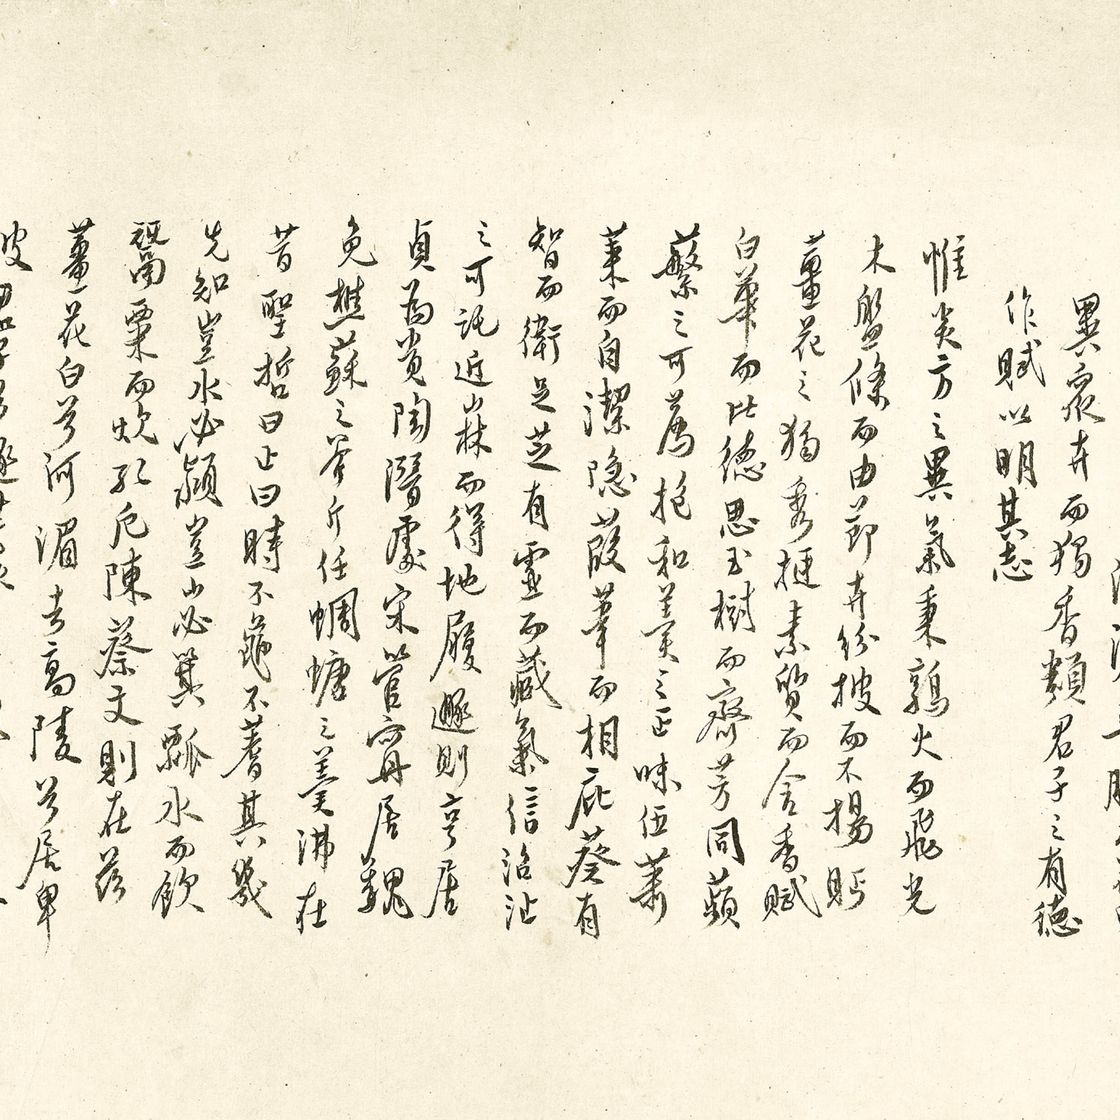 異衆卉而獨香類君子之有德
作賦以明其志
惟炎方之異氣秉鶉火而飛光
木盤條而由節卉紛披而不揚眄
薑花之獨秀挺素質而含香賦
白華而比德思玉樹而齊芳同蘋
蘩之可薦挹和羹之正味伍蕭
萊而自潔隱葭葦而相庇葵有
智而衛足芝有靈而藏氣信沼沚
之可託近山林而得地履遯則亨居
貞為貴陶潛處宋管寧居魏
免樵蘇之斧斤任蜩螗之羹沸在
昔聖哲曰止曰時不龜不蓍其幾
先知豈水必潁豈山必箕瓢水而飲
鬻粟而炊孔厄陳蔡文則在茲
薑花白兮河湄去高陵兮居卑
彼君子兮遯世